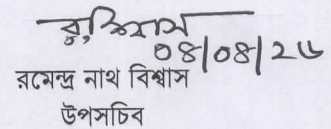 ০৪|০৪|২৬
রমেন্দ্র নাথ বিশ্বাস
উপসচিব